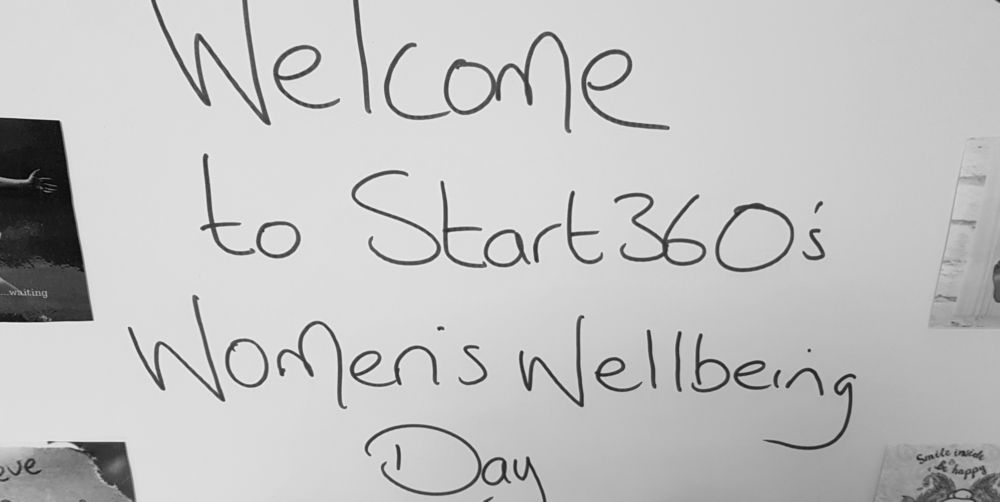 Welcome
to Start360's
Women's Wellbeing
Day
...waiting
Smile inside
& be happy